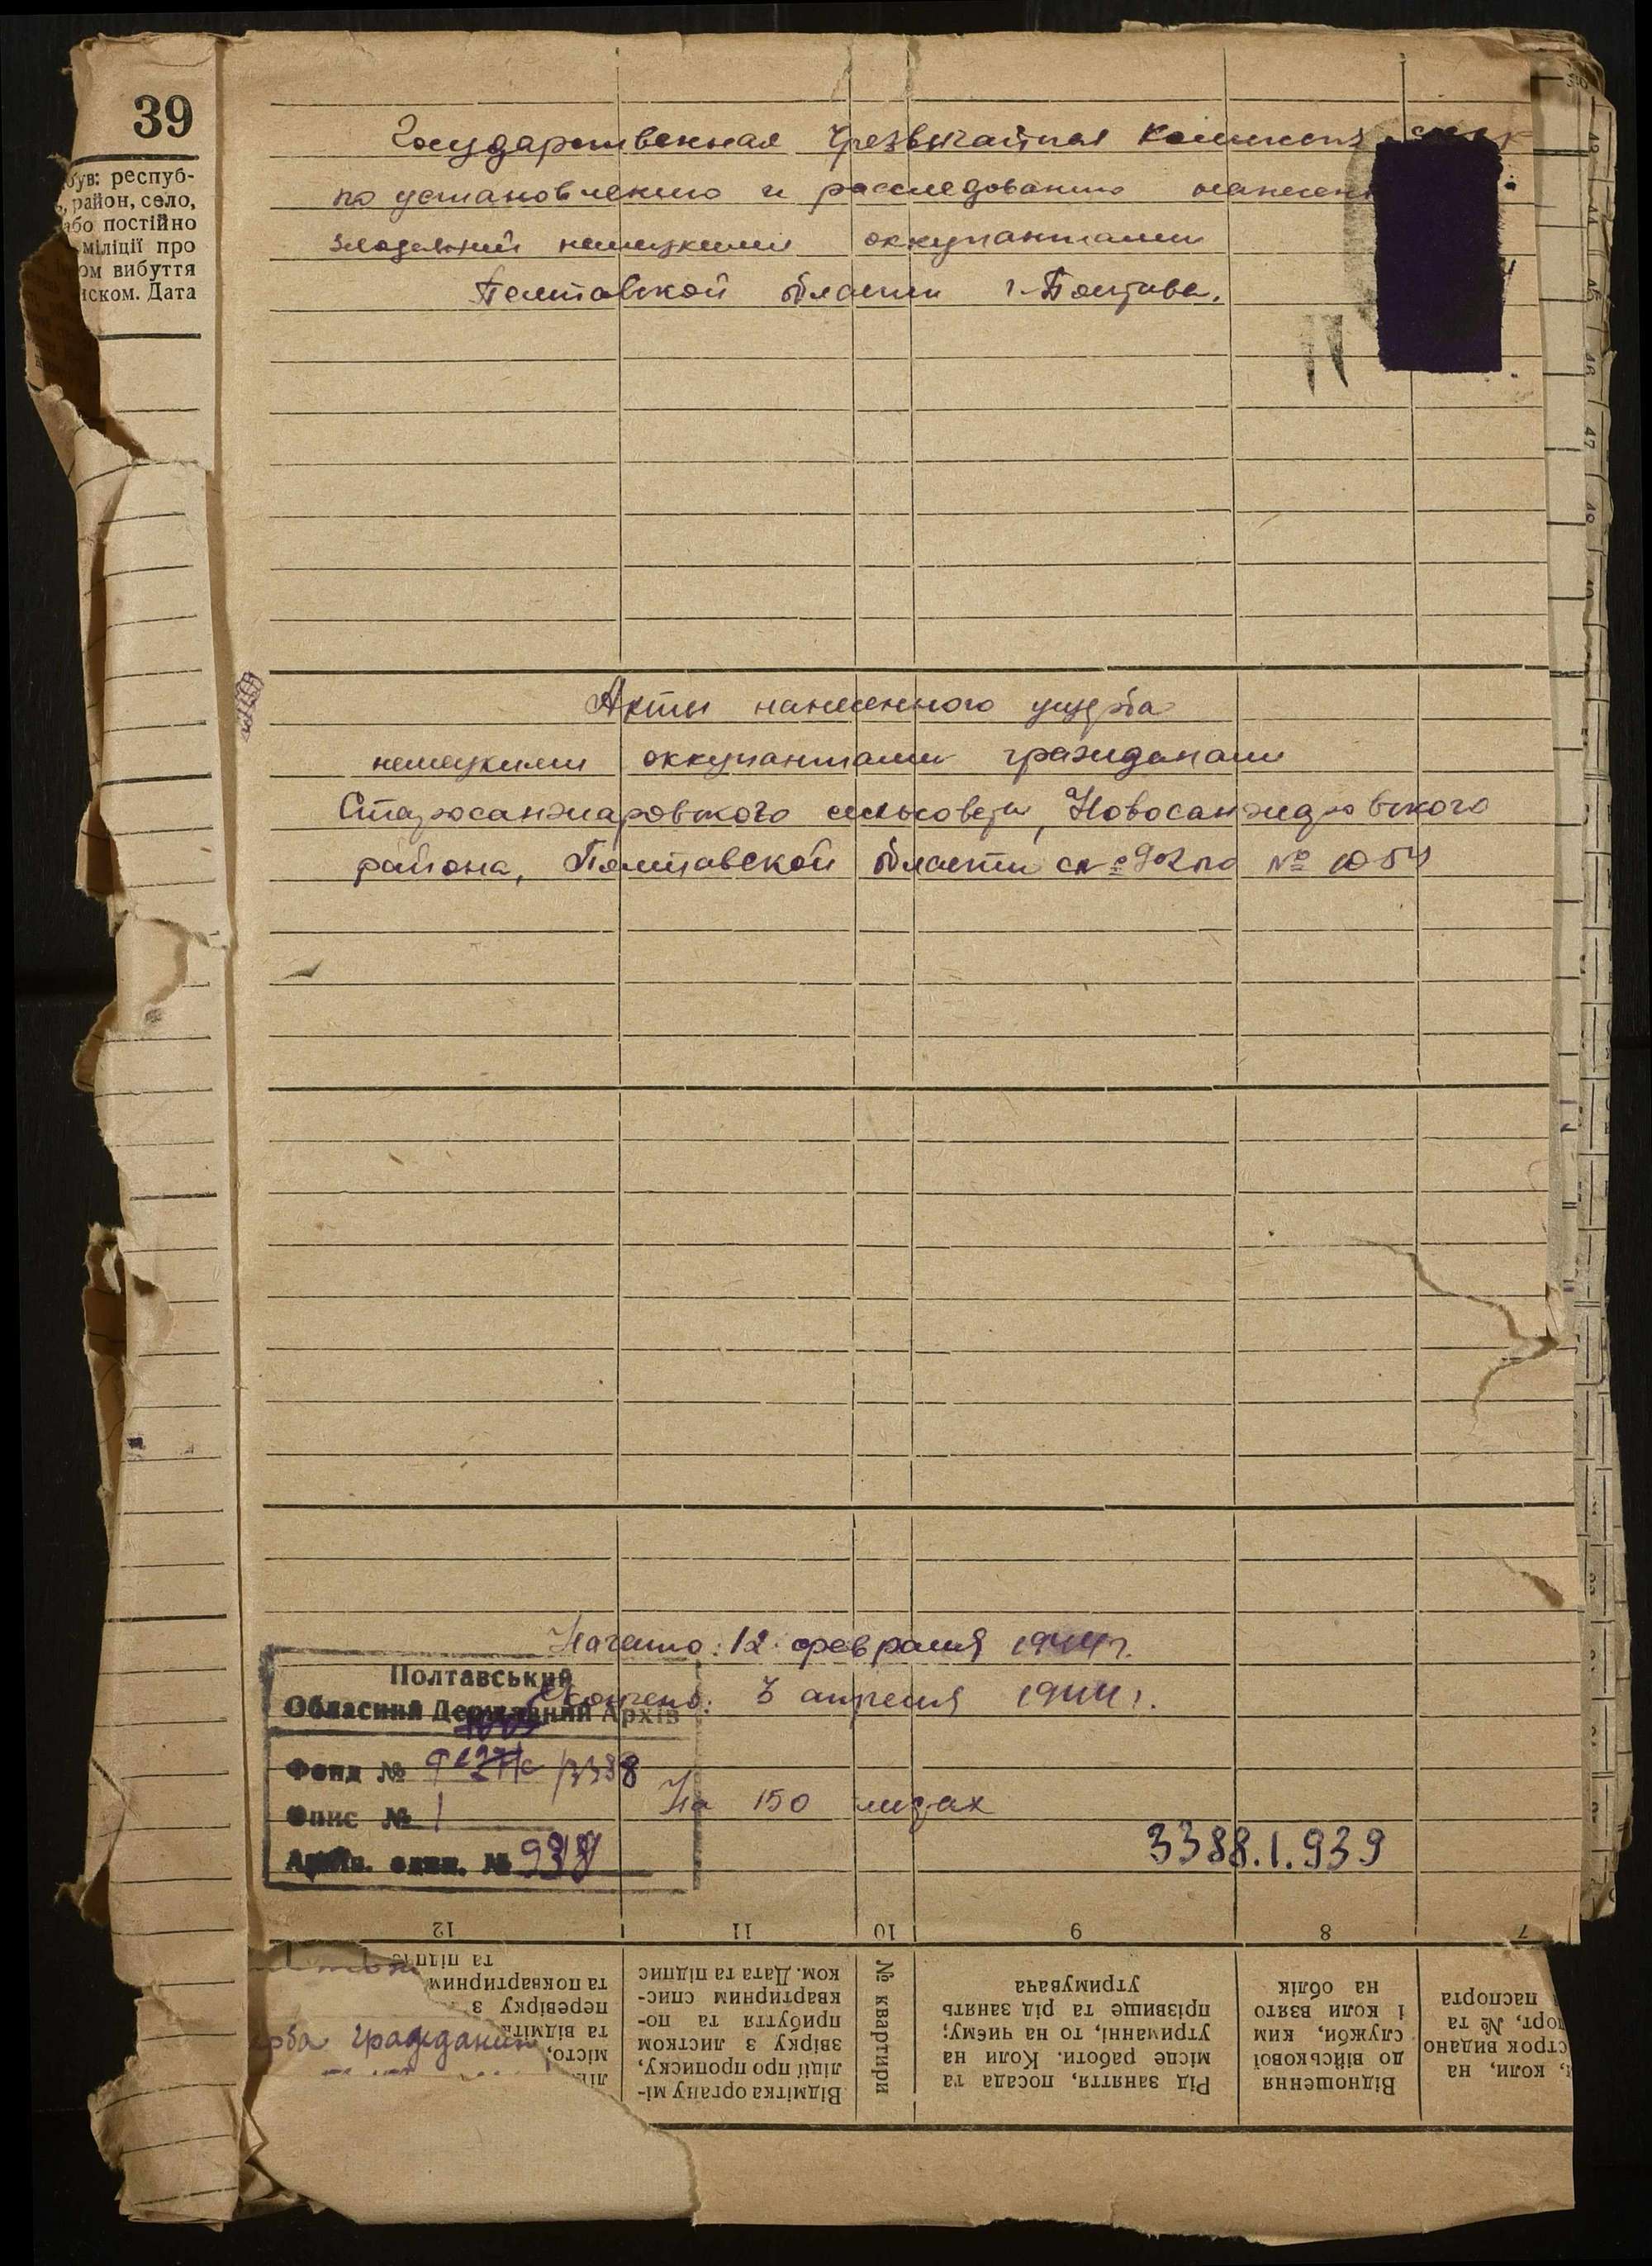 39
був: респуб-
район, село,
або постійно
міліції про
вибуття
Дата
Государственная Чрезвычайная
по установлению и расследованию
злодеяний немецкими оккупантами
Полтавской области г. Полтава.
Акты нанесенного ущерба
немецкими оккупантами гражданам
Старосанжаровского сельсовета, Новосанжаровского
района, Полтавской области с № 902 по № 1054
Начато: 12 февраля 1944 г.
Окончено: 3 апреля 1944 г.
На 150 листах
Полтавський
Обласний Державний Архів
Фонд № /3388
Опис № 1
Архів. един. №
3388.1.939
12 11 10 9 8 7
та підпис
та поквартирним
перевірку з
та відмітка
місто,
Відмітка органу мі-
ліції про прописку,
звірку з листком
прибуття та по-
квартирним спис-
ком. Дата та підпис
№ квартири
Рід заняття, посада та
місце работи. Коли на
утриманні, то на чиєму;
прізвище та рід занять
утримувача
Відношення
до військової
служби, ким
і коли взято
на облік
коли, на
строк видано
№ та
паспорта
гражданам